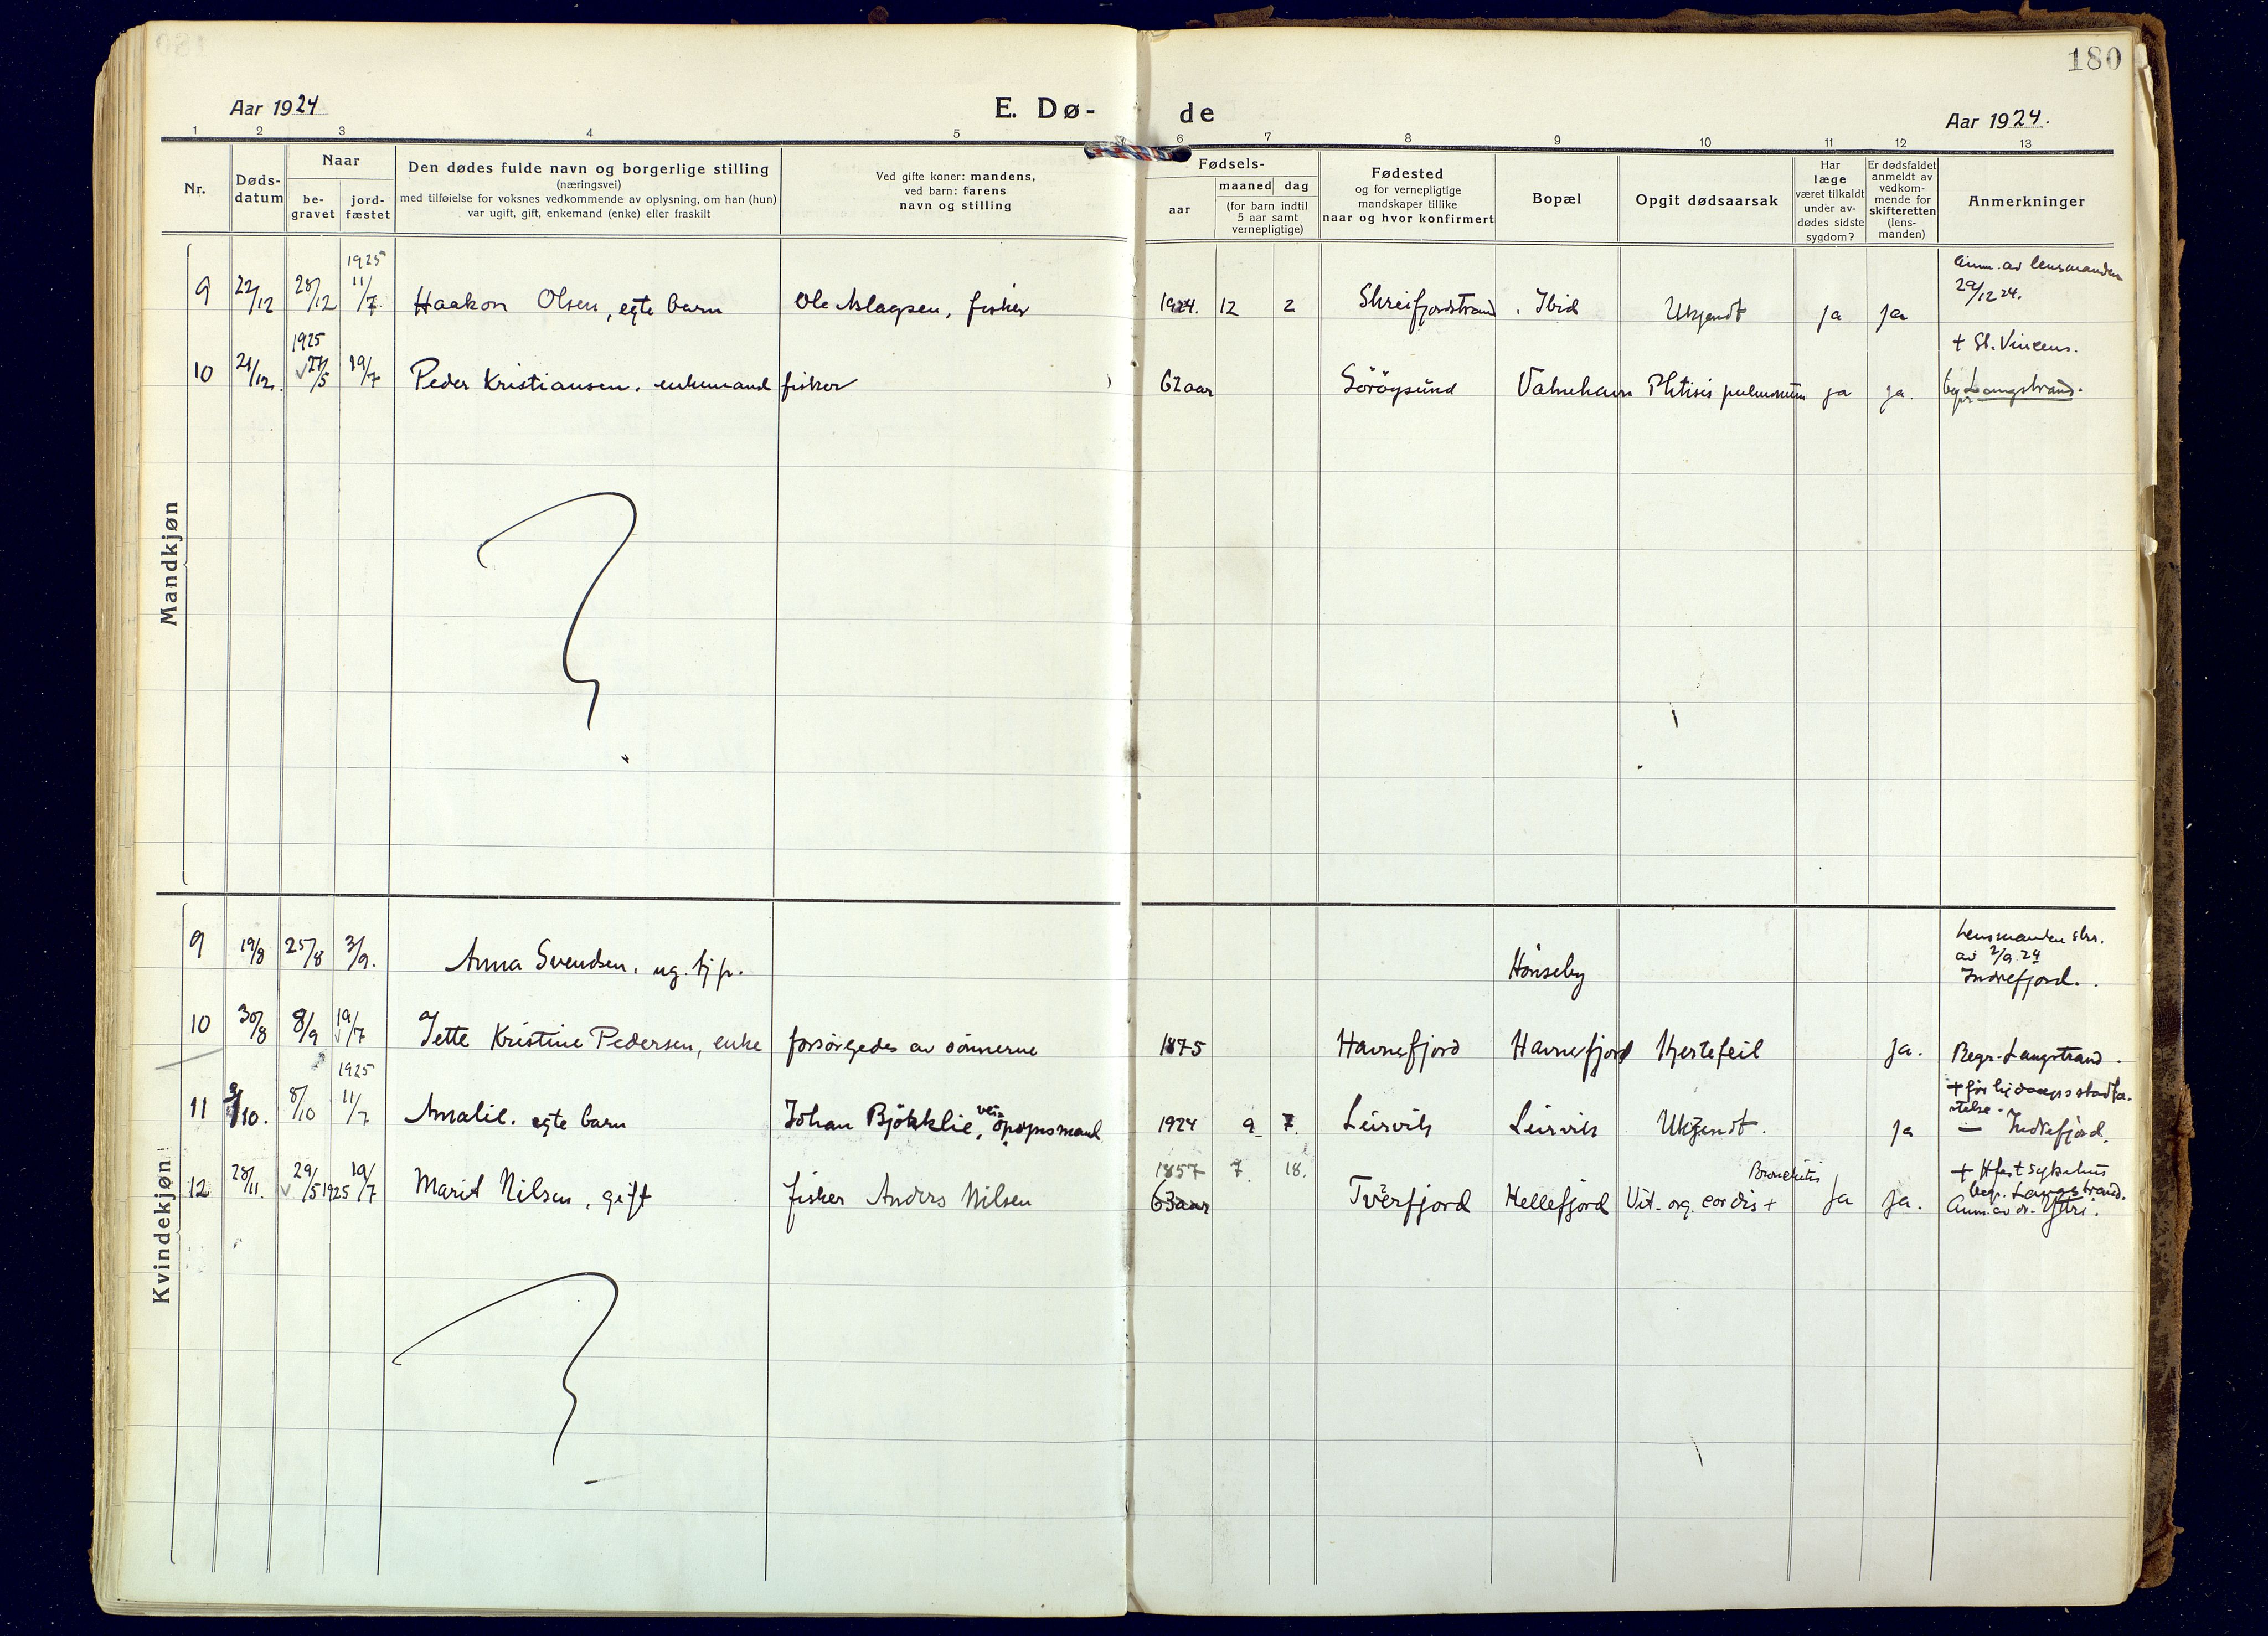 180
Aar 1924
E. Dø- de
Aar 1924.
1 2 3 4 5 6 7 8 9 10 11 12 13
Nr.
Døds-
datum
Naar
be-
gravet
jord-
fæstet
Den dødes fulde navn og borgerlige stilling
(næringsvei)
med tilføielse for voksnes vedkommende av oplysning, om han (hun)
var ugift, gift, enkemand (enke) eller fraskilt
Ved gifte koner: mandens,
ved barn: farens
navn og stilling
Fødsels-
aar
maaned dag
(for barn indtil
5 aar samt
vernepligtige)
Fødested
og for vernepligtige
mandskaper tillike
naar og hvor konfirmert
Bopæl
Opgit dødsaarsak
Har
læge
været tilkaldt
under av-
dødes sidste
sygdom?
Er dødsfaldet
anmeldt av
vedkom-
mende for
skifteretten
(lens-
manden)
Anmerkninger
Mandkjøn
1925
Anm. av lensmanden
29/12 24.
9 22/12 28/12 11/7 Haakon Olsen, egte barn Ole Aslagsen, fisker 1924. 12 2 Skreifjordstrand Ibid Ukjendt ja ja
1925
+ St. Vincens.
10 21/12. 27/5 19/7 Peder Kristiansen, enkemand fisker 62 aar Sørøysund Vatnehavn Phtisis pulmonum ja ja. begr. Langstrand.
Kvindekjøn
Lensmanden skr.
av 2/9 24
Indrefjord.
9 19/8 25/8 3/9. Anna Svendsen, ug. tjp. Hønseby
10 30/8 8/9 19/7 Jette Kristine Pedersen, enke forsørgedes av sønnerne 1875 Havnefjord Havnefjord Hjertefeil ja. Begr. Langstrand.
1925
+ før hj daaps stadfæ-
stelse.
11 3/10. 8/10 11/7 Amalie. egte barn Johan Bjøkklie, vei-opsynsmand 1924 9 7. Leirvik Leirvik Ukjendt. ja — Indrefjord.
1857 7. 18.
Bronchitis
+ Hfest sykehus
begr. Langstrand.
12 28/11. 29/5 1925 19/7 Marit Nilsen, gift fisker Anders Nilsen 63 aar Tverfjord Hellefjord Vit. org. cordis + Ja ja. Anm. av dr.